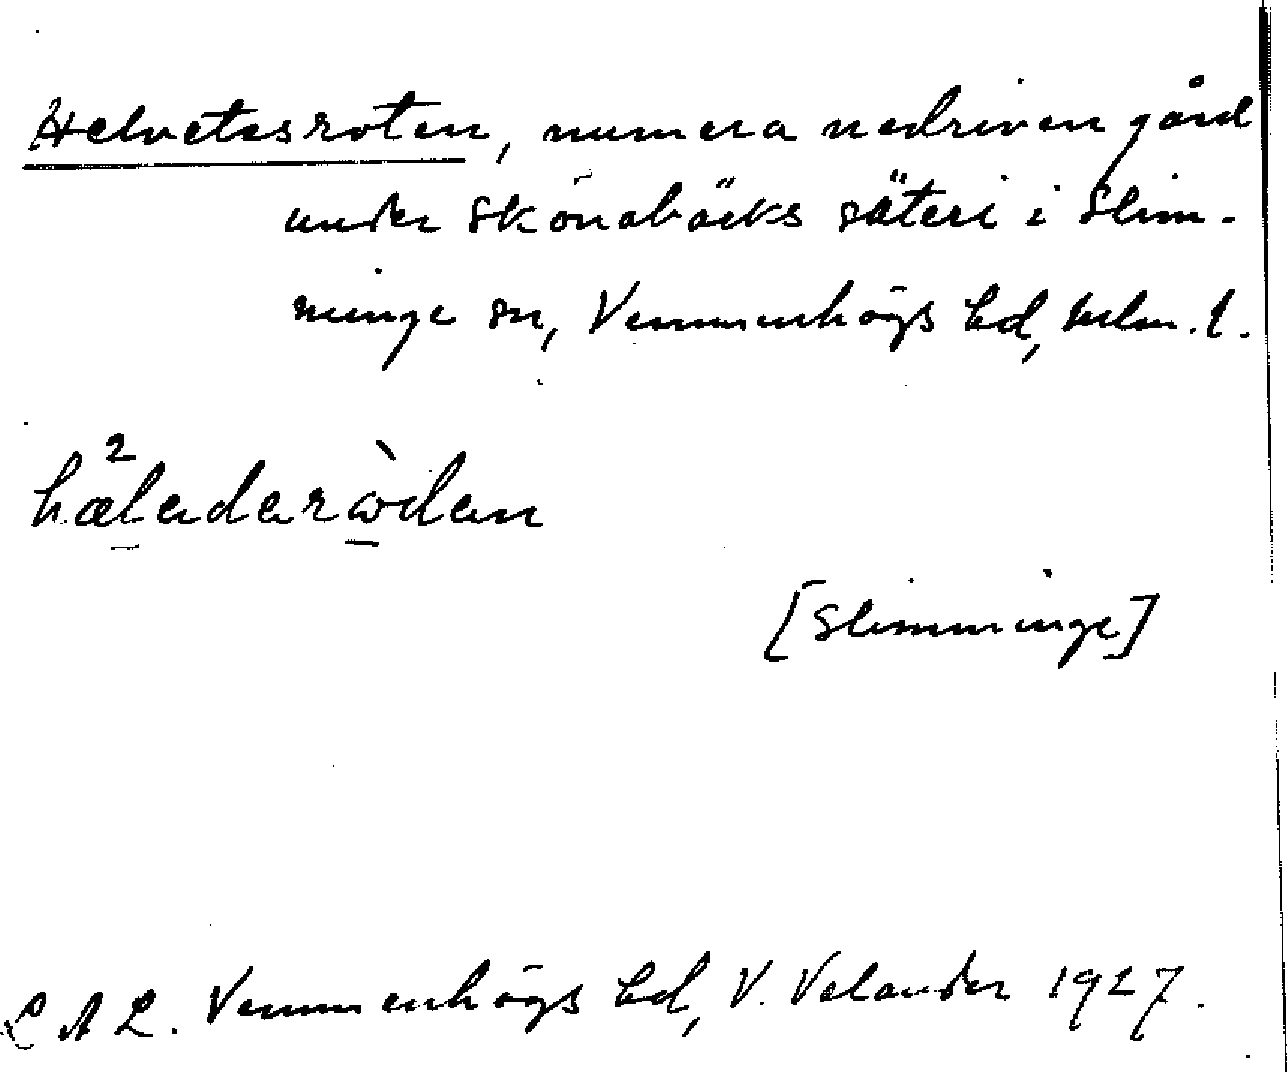 Helvetesroten, numera nedriven gård
under Skönabäcks säteri i Slim-
minge sn, Vemmenhögs hd, Mlm. l.
[Slimminge]
L A L. Vemmenhögs hd, V. Velander 1927.